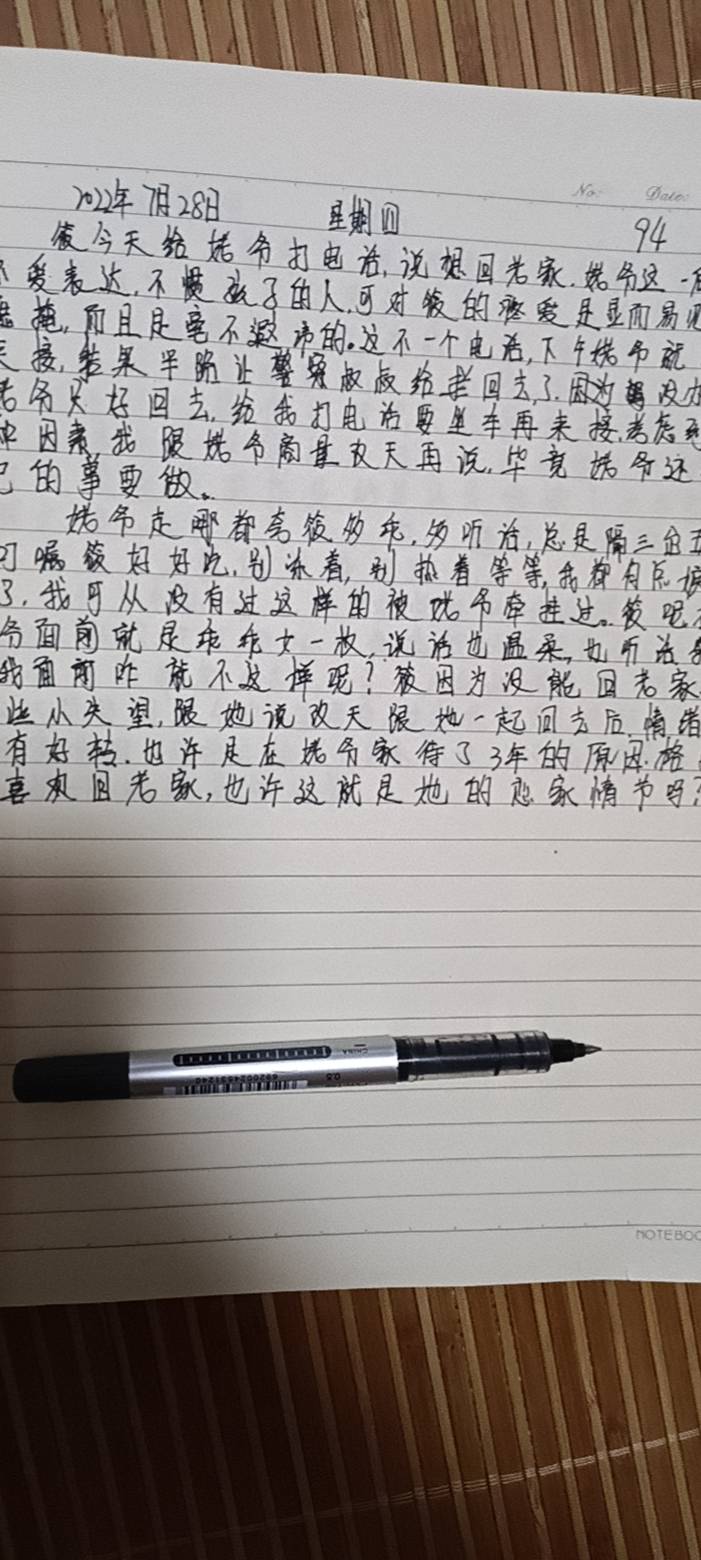 No: Date:
2022年7月28日 星期四 94
筱今天给姥爷打电话,说想回老家.姥爷这一
爱表达,不惯孩子的人,可对筱的疼爱是显而易见
掩,而且是毫不遮掩的。这不一个电话,下午姥爷就
接,结果半路让警察叔叔给拦回去了.因为没
爷只好回去,给我打电话要坐车再来接.考虑到
因素,我跟姥爷商量改天再说,毕竟姥爷还
己的事要做。
姥爷走哪都夸筱多乖,多听话,总是隔三岔五
叮嘱筱好好吃,别冻着,别热着等等,我都有点
了.我可从没有过这样的被姥爷牵挂过。筱呢
爷面前就是乖乖女一枚,说话也温柔,也听话
我面前咋就不这样呢?筱因为没能回老家
些从失望,跟她说改天跟她一起回去后,情绪
有好转.也许是在姥爷家待了3年的原因.格
喜欢回老家,也许这就是她的恋家情节吗?
CHINA
0.5
6920024531240
NOTEBOO